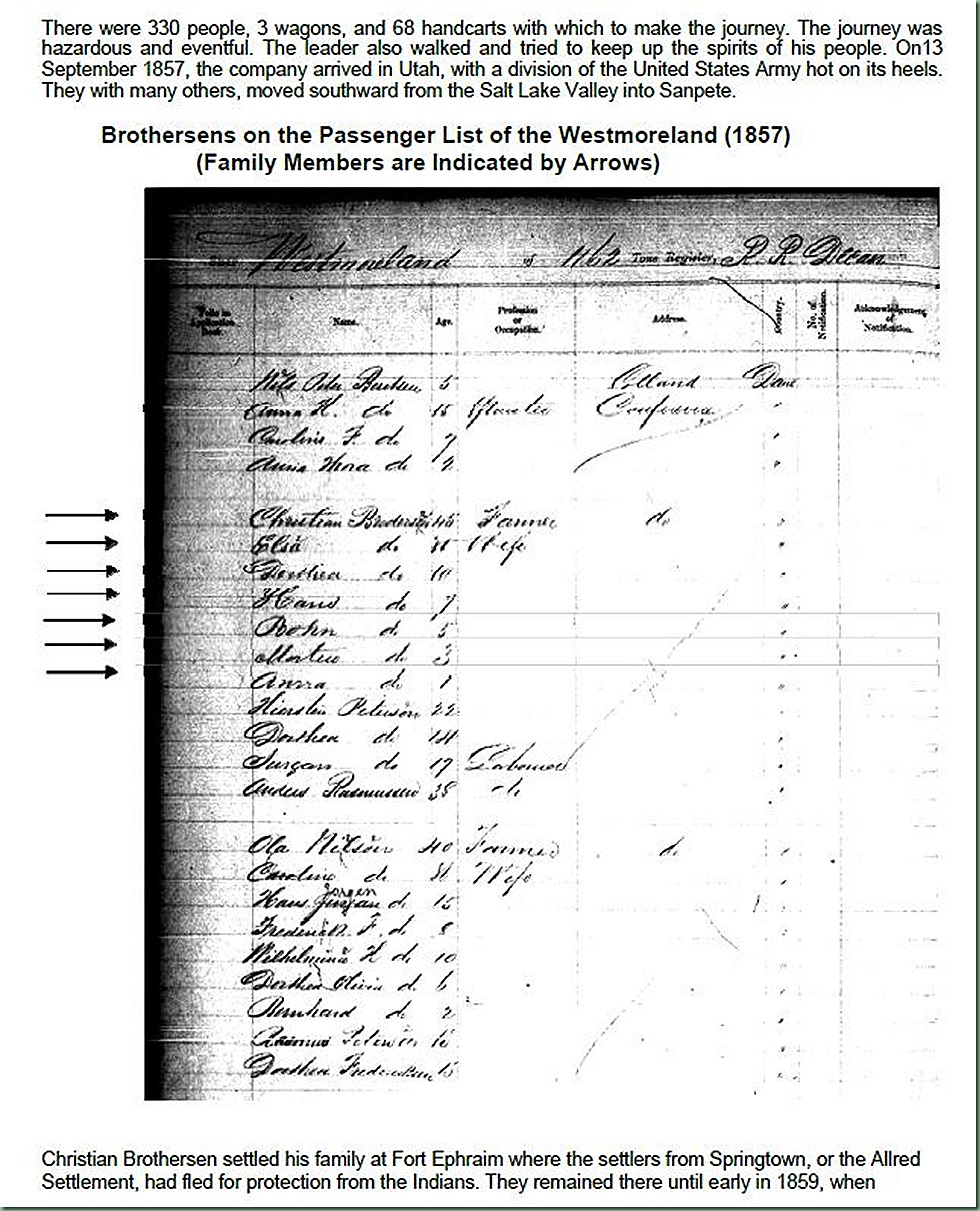 There were 330 people, 3 wagons, and 68 handcarts with which to make the journey. The journey was
hazardous and eventful. The leader also walked and tried to keep up the spirits of his people. On13
September 1857, the company arrived in Utah, with a division of the United States Army hot on its heels.
They with many others, moved southward from the Salt Lake Valley into Sanpete.
Brothersens on the Passenger List of the Westmoreland (1857)
(Family Members are Indicated by Arrows)
Westmoreland of 1162 Tons Register,
Name. Age. Profession or Occupation. Address. Country. No. of Notification. Acknowledgement of Notification.
5 Dane
Anna H. do 15 Conference
Caroline F. do 7
Anna Thora do 2
Christian 45 Farmer do
Elsa do Wife
Dorthea do 10
Hans do 7
do 5
Morten do 3
Anna do 1
Peterson 22
Dorthea do 14
Jurgan do 17 Labourer
Anders Rasmussen 38 do
Ola Nilson 40 Farmer do
Caroline do Wife
Hans Jorgen do 15
Frederick F. do 8
Wilhelmina H do 10
Dorthea Olivia do 6
Bernhard do 2
Dorthea
Christian Brothersen settled his family at Fort Ephraim where the settlers from Springtown, or the Allred
Settlement, had fled for protection from the Indians. They remained there until early in 1859, when